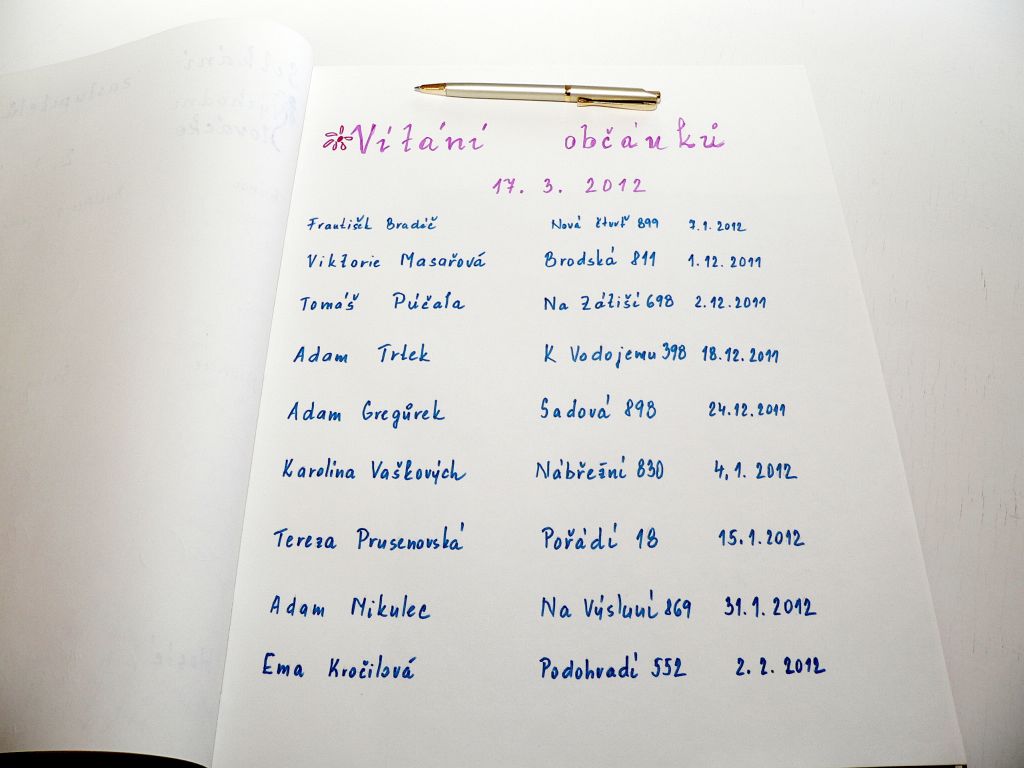 Vítání občánků
17. 3. 2012
František Bradáč Nová čtvrť 899 7.1.2012
Viktorie Masařová Brodská 811 1.12.2011
Tomáš Púčala Na Zátiší 698 2.12.2011
Adam Trlek K Vodojemu 398 18.12.2011
Adam Gregůrek Sadová 898 24.12.2011
Karolína Vaškových Nábřežní 830 4.1.2012
Tereza Prusenovská Pořádí 18 15.1.2012
Adam Mikulec Na Výsluní 869 31.1.2012
Ema Kročilová Podohradí 552 2.2.2012